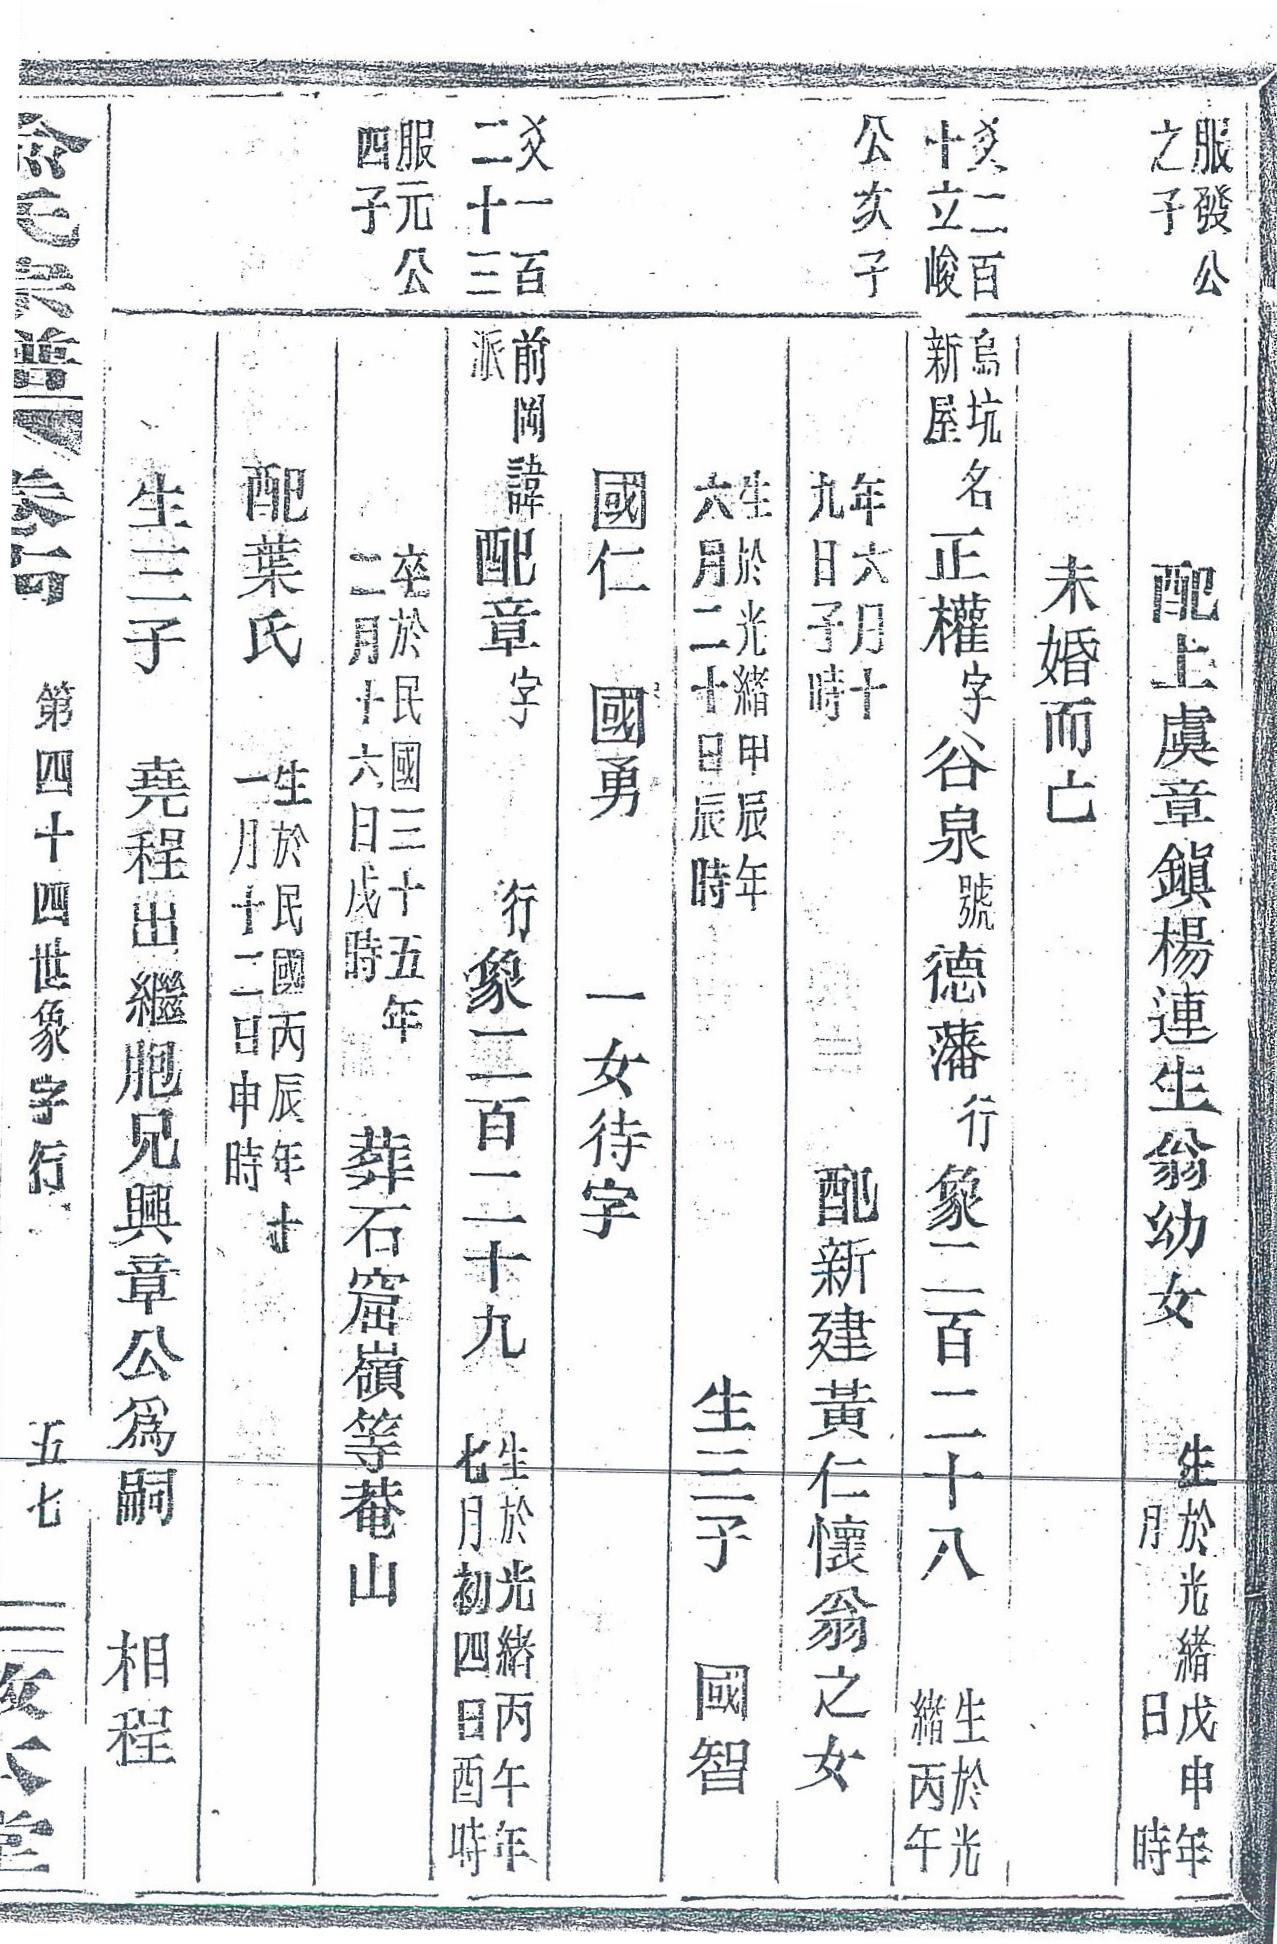 服發公
之子
配上虞章鎮楊連生翁幼女
生於光緒戊申年
月 日 時
未婚而亡
爻二百
十立峻
烏坑
新屋
名正權字谷泉號德藩行象二百二十八
生於光
緒丙午
公亥子
年六月十
九日子時
配新建黃仁懷翁之女
生於光緒甲辰年
六月二十日辰時
生三子 國智
國仁 國勇 一女待字
爻一百
二十三
前岡
派
諱配章字 行象二百二十九
生於光緒丙午年
七月初四日酉時
服元公
四子
卒於民國三十五年
二月十六日戌時
葬石窟嶺等菴山
配葉氏
生於民國丙辰年十
一月十二日申時
生三子 堯程出繼胞兄興章公爲嗣 相程
俞氏宗譜 卷
第四十四世象字行 五七
堂